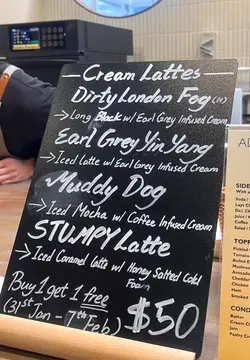 Cream Lattes
Dirty London Fog (H)
→ Long Black w/ Earl Grey Infused Cream
Earl Grey Yin Yang
→ Iced Latte w/ Earl Grey Infused Cream
Muddy Dog
→ Iced Mocha w/ Coffee Infused Cream
STUMPY Latte
→ Iced Caramel Latte w/ Honey Salted Cold Foam
Buy 1 get 1 free
(31st Jan - 7th Feb)
$50
AD
SIDE
TOPP
COND